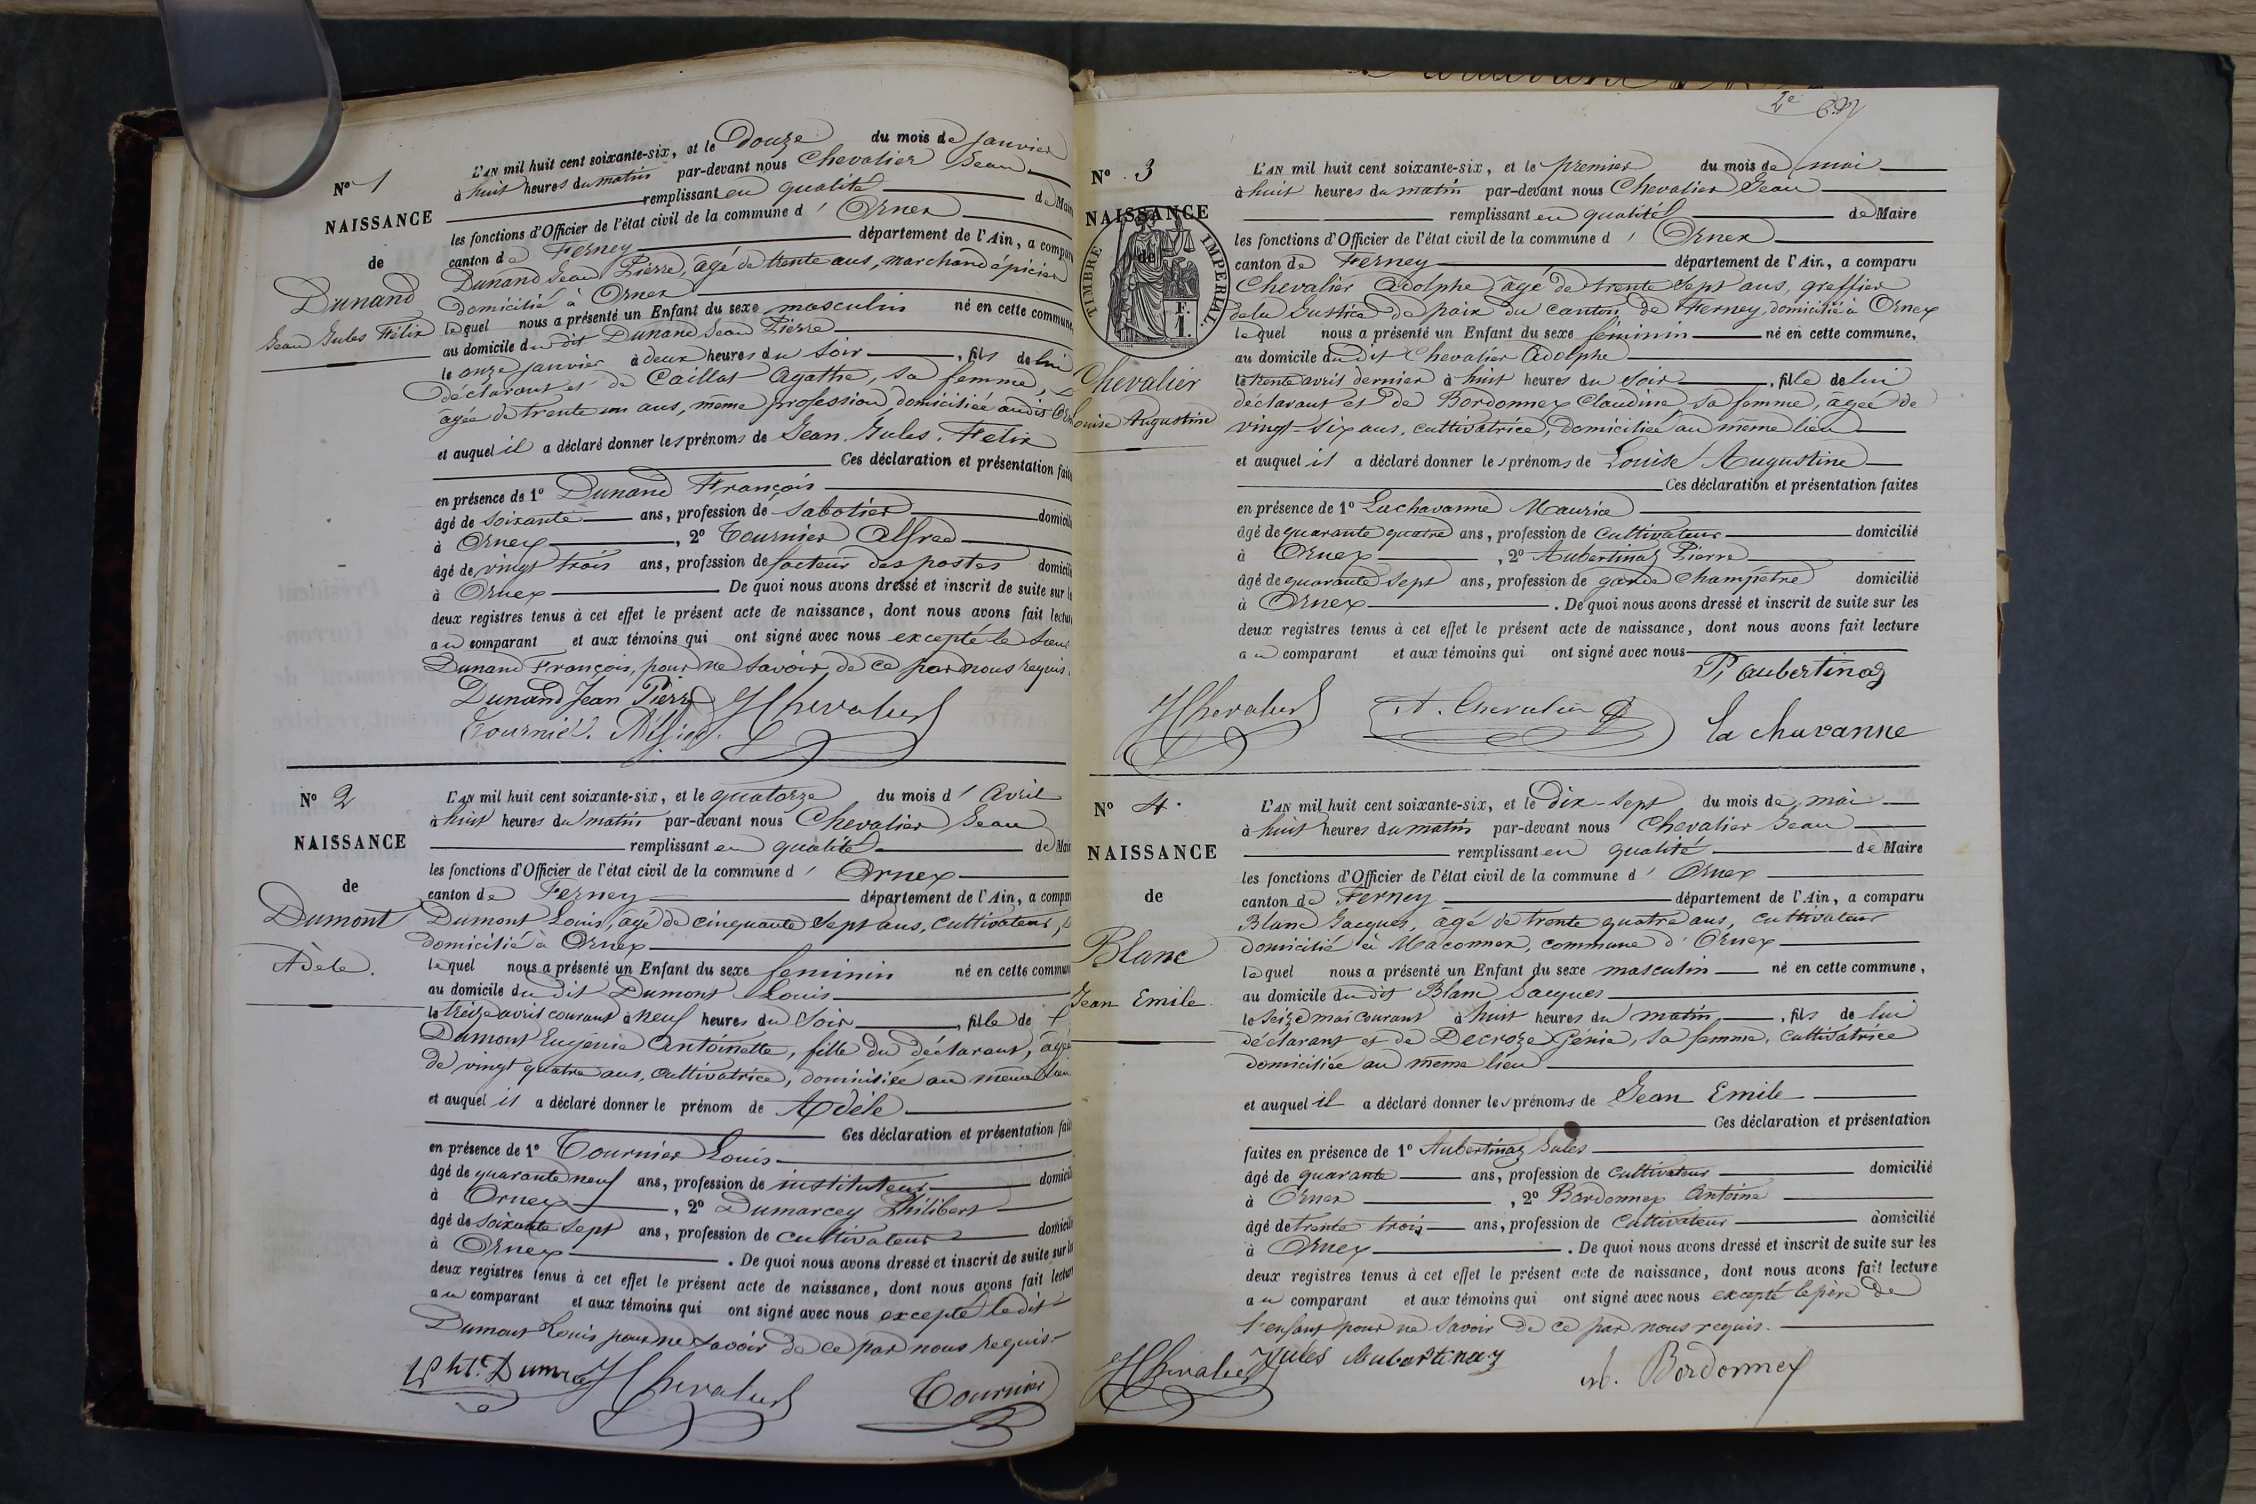 N° 1
NAISSANCE
de
Dunand
Jean Jules Félix
L'AN mil huit cent soixante-six, et le Douze du mois de janvier
à huit heures du matin par-devant nous Chevalier Jean
remplissant en qualité de Maire
les fonctions d'Officier de l'état civil de la commune d' Ornex
canton de Ferney département de l'Ain, a comparu
Dunand Jean Pierre, âgé de trente ans, marchand épicier
domicilié à Ornex
lequel nous a présenté un Enfant du sexe masculin né en cette commune,
au domicile du dit Dunand Jean Pierre
le onze janvier à deux heures du soir, fils de lui
déclarant et de Caillat Agathe, sa femme,
âgée de trente un ans, même profession, domiciliée audit Orn
et auquel il a déclaré donner les prénoms de Jean, Jules, Felix
Ces déclaration et présentation faites
en présence de 1° Dunand François
âgé de soixante ans, profession de sabotier domicilié
à Ornex, 2° Tournier Alfred
âgé de vingt trois ans, profession de facteur des postes domicilié
à Ornex De quoi nous avons dressé et inscrit de suite sur les
deux registres tenus à cet effet le présent acte de naissance, dont nous avons fait lecture
au comparant et aux témoins qui ont signé avec nous excepté le sieur
Dunand François, pour ne savoir de ce par nous requis.
Dunand Jean Pierre JChevalier
Tournier. Alfred.
N° 2
NAISSANCE
de
Dumont
Adèle.
L'AN mil huit cent soixante-six, et le quatorze du mois d' Avril
à huit heures du matin par-devant nous Chevalier Jean
remplissant en qualité de Maire
les fonctions d'Officier de l'état civil de la commune d' Ornex
canton de Ferney département de l'Ain, a comparu
Dumont Louis, âgé de cinquante sept ans, cultivateur,
domicilié à Ornex
lequel nous a présenté un Enfant du sexe feminin né en cette commune
au domicile du dit Dumont Louis
le treize avril courant à neuf heures du soir, fille de
Dumont Eugénie Antoinette, fille du déclarant, âgée
de vingt quatre ans, cultivatrice, domiciliée au même lieu
et auquel il a déclaré donner le prénom de Adèle
Ces déclaration et présentation faites
en présence de 1° Tournier Louis
âgé de quarante neuf ans, profession de instituteur domicilié
à Ornex, 2° Dumarcey Philibert
âgé de soixante sept ans, profession de cultivateur domicilié
à Ornex. De quoi nous avons dressé et inscrit de suite sur les
deux registres tenus à cet effet le présent acte de naissance, dont nous avons fait lecture
au comparant et aux témoins qui ont signé avec nous excepté ledit
Dumont Louis pour ne savoir de ce par nous requis.
JChevalier Tournier
2e
N° 3
NAISSANCE
de
TIMBRE IMPERIAL.
F.
1.
Chevalier
Louise Augustine
L'AN mil huit cent soixante-six, et le premier du mois de mai
à huit heures du matin par-devant nous Chevalier Jean
remplissant en qualité de Maire
les fonctions d'Officier de l'état civil de la commune d' Ornex
canton de Ferney département de l'Ain, a comparu
Chevalier Adolphe âgé de trente sept ans, greffier
de la Justice de paix du canton de Ferney, domicilié à Ornex
lequel nous a présenté un Enfant du sexe féminin né en cette commune,
au domicile du dit Chevalier Adolphe
le trente avril dernier à huit heures du soir, fille de lui
déclarant et de Bordonnex Claudine, sa femme, âgée de
vingt-six ans, cultivatrice, domiciliée au même lieu
et auquel il a déclaré donner les prénoms de Louise Augustine
Ces déclaration et présentation faites
en présence de 1° Lachavanne Maurice
âgé de quarante quatre ans, profession de cultivateur domicilié
à Ornex, 2° Aubertinaz Pierre
âgé de quarante sept ans, profession de garde champêtre domicilié
à Ornex. De quoi nous avons dressé et inscrit de suite sur les
deux registres tenus à cet effet le présent acte de naissance, dont nous avons fait lecture
au comparant et aux témoins qui ont signé avec nous
P, aubertinaz
JChevalier A. Chevalier la chavanne
N° 4.
NAISSANCE
de
Blanc
Jean Emile
L'AN mil huit cent soixante-six, et le dix-sept du mois de mai
à huit heures du matin par-devant nous Chevalier Jean
remplissant en qualité de Maire
les fonctions d'Officier de l'état civil de la commune d' Ornex
canton de Ferney département de l'Ain, a comparu
Blanc Jacques, âgé de trente quatre ans, cultivateur
domicilié à Maconnex, commune d'Ornex
lequel nous a présenté un Enfant du sexe masculin né en cette commune,
au domicile du dit Blanc Jacques
le seize mai courant à huit heures du matin, fils de lui
déclarant et de Decroze Génie, sa femme, cultivatrice
domiciliée au même lieu
et auquel il a déclaré donner les prénoms de Jean Emile
Ces déclaration et présentation
faites en présence de 1° Aubertinaz Jules
âgé de quarante ans, profession de cultivateur domicilié
à Ornex, 2° Bordonnex Antoine
âgé de trente trois ans, profession de cultivateur domicilié
à Ornex. De quoi nous avons dressé et inscrit de suite sur les
deux registres tenus à cet effet le présent acte de naissance, dont nous avons fait lecture
au comparant et aux témoins qui ont signé avec nous excepté le père de
l'enfant pour ne savoir de ce par nous requis.
JChevalier Jules Aubertinaz Bordonnex